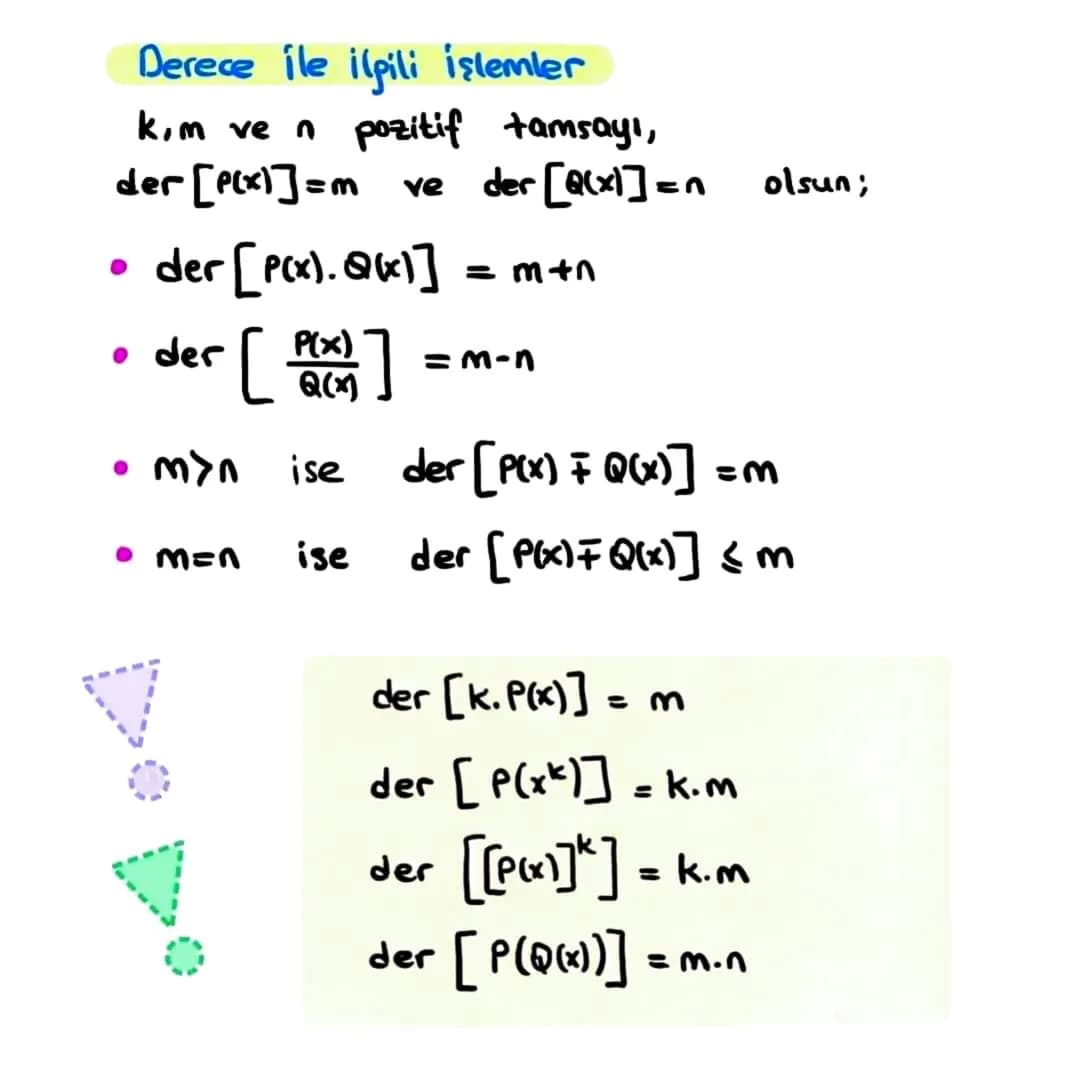 Derece ile ilgili işlemler
k,m ve n pozitif tamsayı,
der[P(x)]=m ve der[Q(x)]=n olsun;
• der[P(x).Q(x)] = m+n
• der[P(x)/Q(x)] = m-n
• m>n ise der[P(x)∓Q(x)] =m
• m=n ise der[P(x)∓Q(x)] ⩽ m
der[k.P(x)] = m
der[P(x^k)] = k.m
der[[P(x)]^k] = k.m
der[P(Q(x))] = m.n